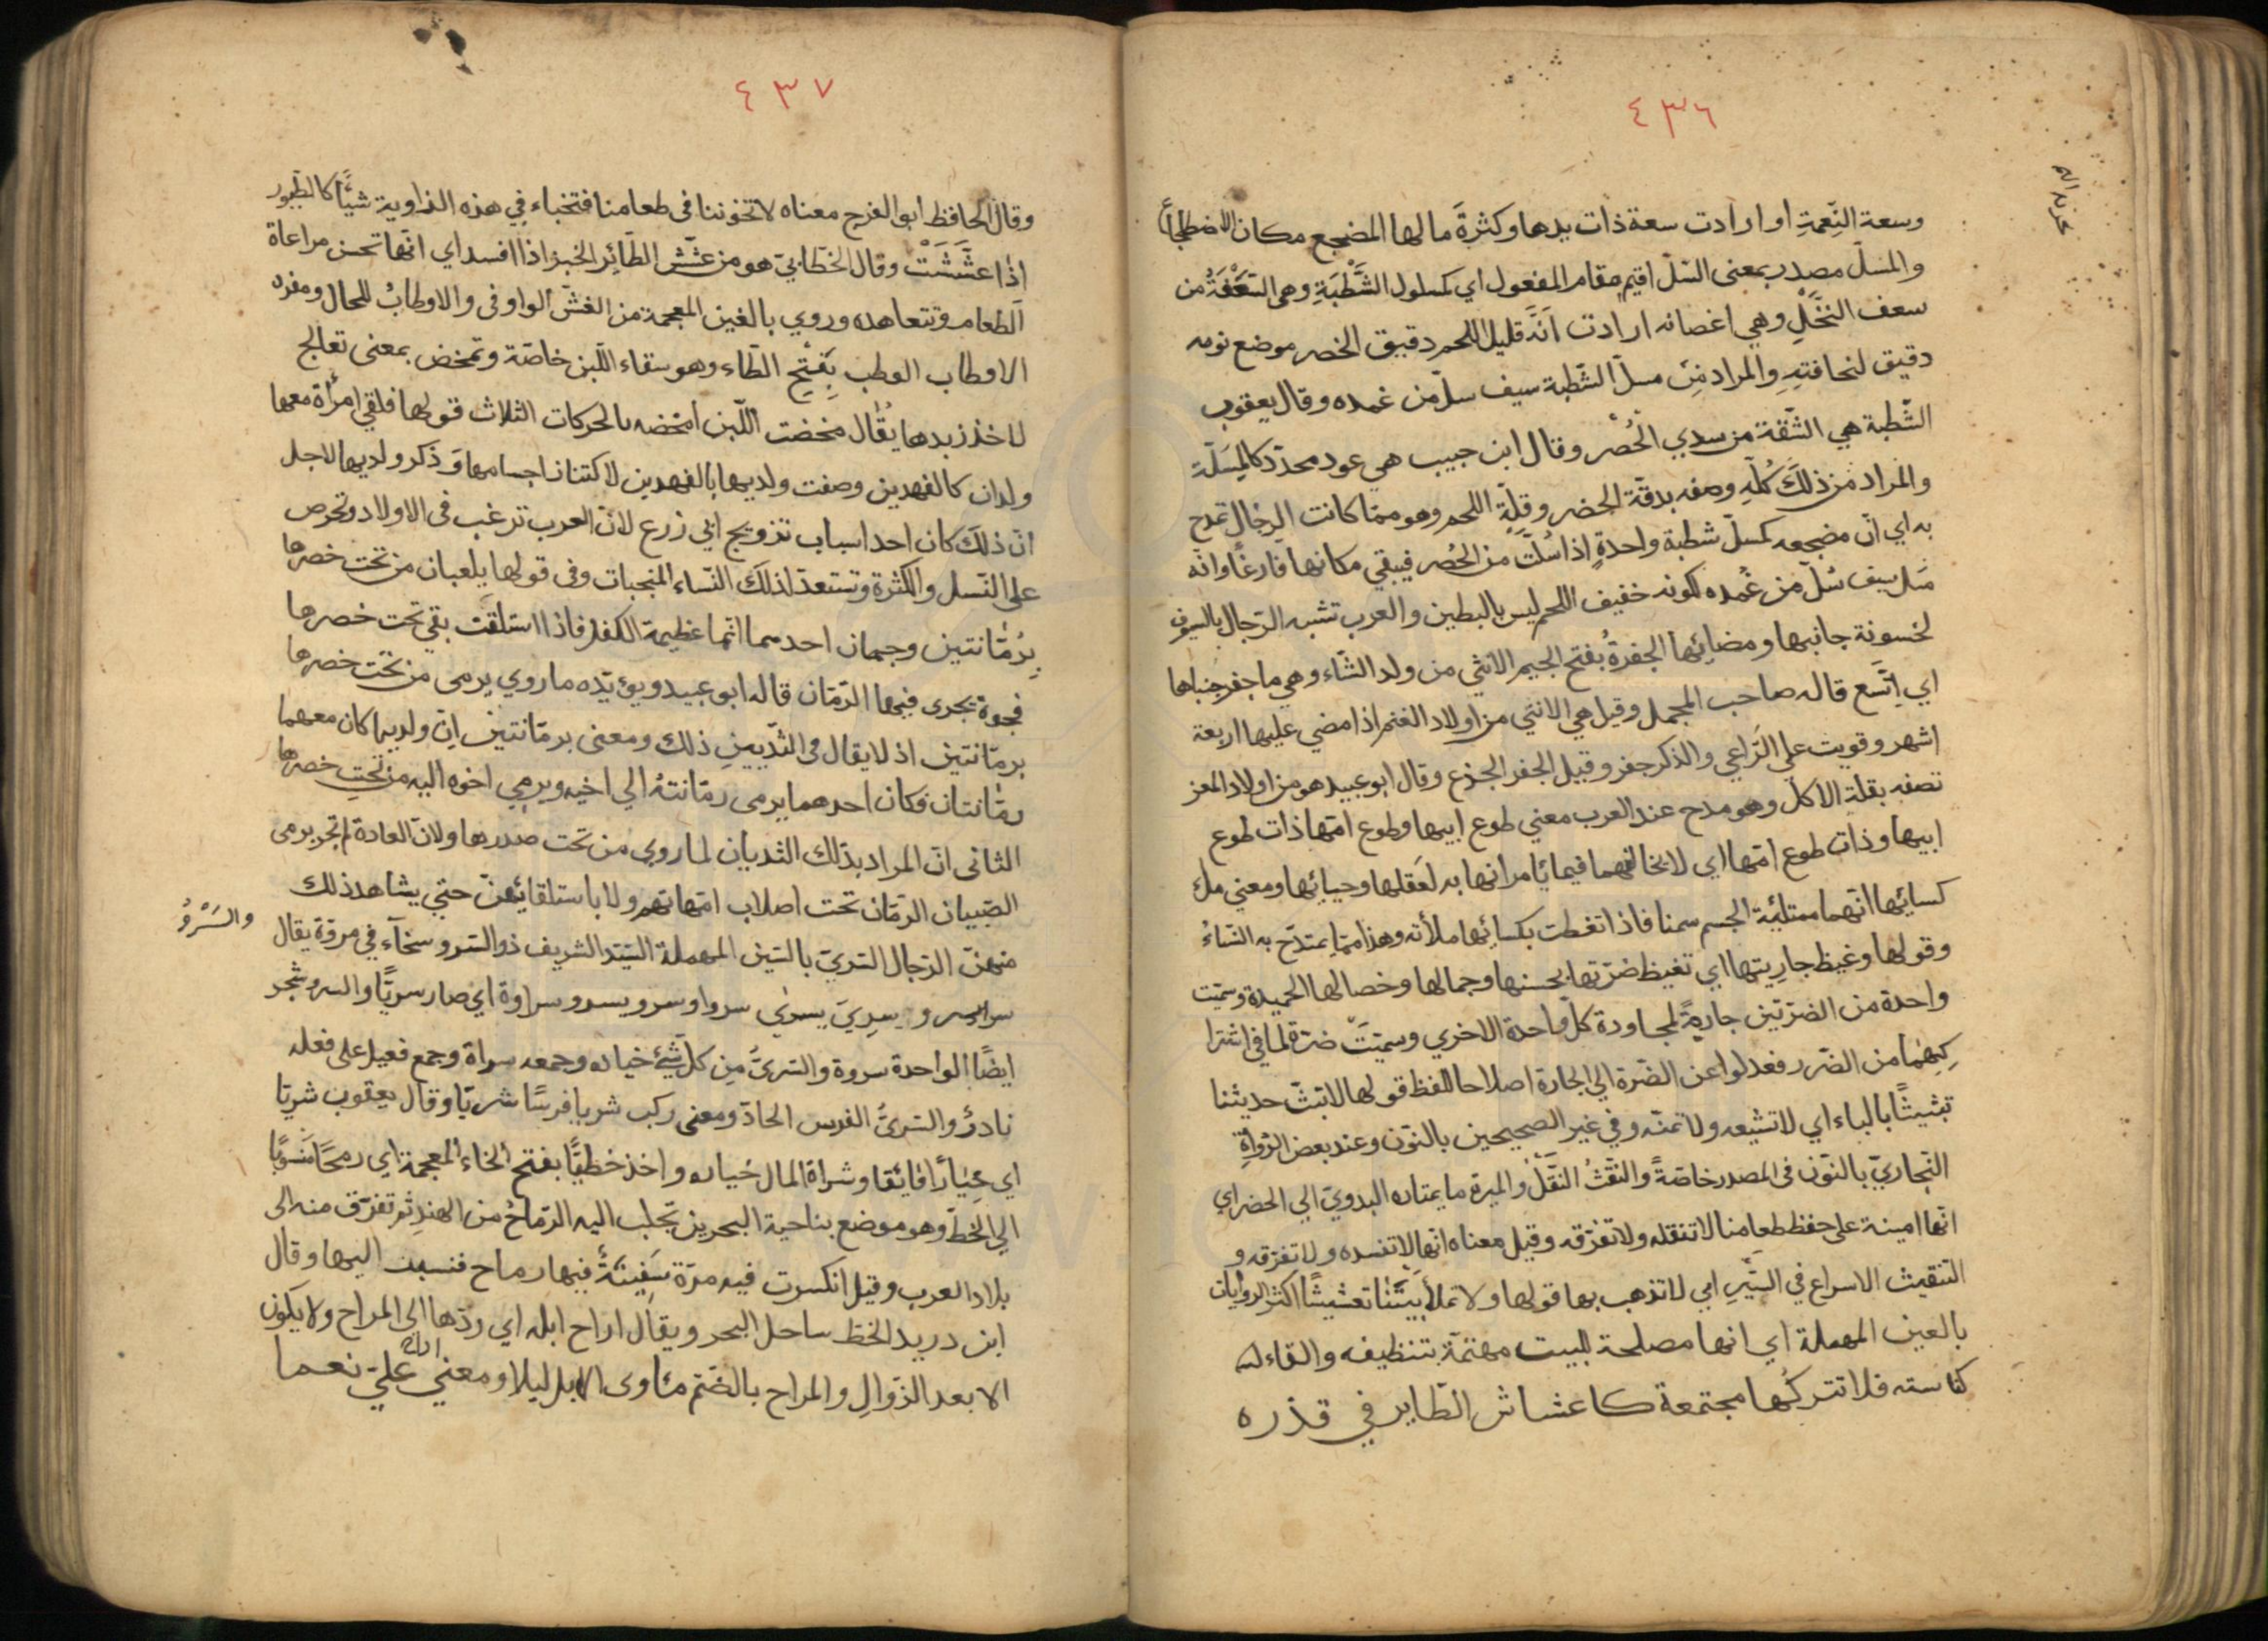 ٤٣٦
وسعة النِّعمةِ او ارادت سعة ذات يدها وكثرةَ مالها المضجع مكان الاضطجاع
والمسلّ مصدر بمعنى السّلّ اقيم مقام المفعول اي كمسلول الشَّطْبَةِ وهى السَّعَفَةُ من
سعف النَّخْلِ وهي اغصانه ارادت انَّه قليل اللحم دقيق الخصر موضع نومه
دقيق لنحافتهِ والمراد من مسلّ الشّطبة سيف سلّ من غمده وقال يعقوب
الشّطبة هي الشّقة من سدي الْحُصْر وقال ابن حبيب هى عود محدّد كالمِسَلّة
والمراد من ذلكَ كُلّهِ وصفه بدقّة الخصر وقِلّةِ اللحم وهو ممّا كانت الرجال تمدح
به اي انّ مضجعه كمسلّ شطبة واحدةٍ اذا سُلّت من الحُصر فيبقي مكانها فارغًا وانّه
مثل سيف سُلّ من غمده لكونه خفيف اللحم ليس بالبطين والعرب تشبه الرّجال بالسيوف
لخسونة جانبها ومضائِها الجفرةُ بفتح الجيم الانثي من ولد الشّاء وهي ما جفر جنباها
اي اِتَّسَع قاله صاحب المجمل وقيل هي الانثي من اولاد الغنم اذا مضي عليها اربعة
اشهر وقويت علي الرّاعي والذكر جفر وقيل الجفر الجذع وقال ابو عبيد هو من اولاد المعز
تصفه بقلة الاكل وهو مدح عند العرب معني طوع ابيها وطوع امّها ذات طوع
ابيها وذات طوع امّها اي لا تخالفهما فيما يامرانها به لعَقلها وحيائِها ومعني ملء
كسائِها انّها ممتلئة الجسم سمنا فاذا تغطت بكسائِها ملأته وهذا ممّا يمتدح به النّساءُ
وقولها وغيظ جاريتها اي تغيظ ضرّتها بحسنها وجمالها وخصالها الحميدة وسمّيت
واحدة من الضرّتين جارةً لمجاورة كلّ واحدة الاخري وسميّتَ ضرة لما في اشترا
كِهِمَا من الضّرر فعدلوا عن الضّرة الي الجارة اصلاحا للفظ قولها لا تبثّ حديثنا
تبثيثًا بالباء اي لا تشيعه ولا تمنّه وفي غير الصحيحين بالنّون وعند بعض الرّواةِ
البخاريّ بالنّون فى المصدر خاصّةً والنّقثُ النّقْلُ والميرة ما يمتاره البدويّ الي الحضر اي
انّها امينة على حفظ طعامنا لا تنقله ولا تفرّقه وقيل معناه انّها لا تفسده ولا تفرّقه و
التنقيث الاسراع في السَّيْرِ اي لا تذهب بها قولها ولا تملأ بَيْتَنا تعشيشًا اكثر الروايات
بالعين المهملة اي انها مصلحة للبيت مهتمّة بتنظيفه والقاء له
كناسته فلا تتركُها مجتمعة كاعشاش الطّاير في قذره
٤٣٧
وقال الحافظ ابو الفرج معناه لا تخوننا فى طعامنا فتخباء في هذه الزاوية شيئًا كالطّيور
اذا عشَّشَتْ وقال الخطّابيّ هو من عشّش الطّائِر الخبز اذا افسد اي انّها تحسن مراعاة
الطعام وتتعاهده وروي بالغين المعجمة من الغشّ الواو فى والاوطابُ للحال ومفرده
الاوطاب الوطب بِفَتْحِ الطّاء وهو سقاء اللّبن خاصّة وتمخض بمعنى تعالج
لاخذ زبدها يقُال مخضت اللّبن امخضه بالحركات الثلاث قولها فلقي امرأة معها
ولدان كالفهدين وصفت ولديها بالفهدين لاكتناز اجسامها وَذكر ولديها لاجل
انّ ذلك كان احد اسباب تزويج ابي زرع لانّ العرب ترغب فى الاولاد وتحرص
على النّسل والكثرة وتستعدّ لذلك النّساء المنجبات وفى قولها يلعبان من تحت خصرها
بِرُمّانتين وجهان احدهما انّها عظيمة الكفل فاذا استلقت بقي تحت خصرها
فجوة يجرى فيها الرّمّان قاله ابو عبيد ويؤيّده ما روي يرمى من تحت خصرها
برمّانتين اذ لا يقال فى الثديينِ ذلك ومعنى برمّانتين اِنّ ولديها كان معهما
رمّانتان فكان احدهما يرمى رمّانتهُ الي اخيه ويرمي اخوه اليه من تحتِ خصرها
الثانى انّ المراد بذلك الثديان لما روي من تحت صدرها ولانّ العادة لم تجر برمى
الصّبيان الرّمّان تحت اصلاب امّهاتهم ولا باستلقائهنّ حتي يشاهد ذلك
منهنّ الرّجال السّريّ بالسّين المهملة السّيّد الشريف ذو السّرو سخآء في مروّة يقال
والسَرْوُ
وسِرِيَ يسرٰي سروا وسرو يسرو سراوة اي صار سريًّا والسرو شجر
ايضًا الواحدة سروة والسّرىّ مِن كلّ شئ خياره وجمعه سراة وجمع فعيل على فعله
نادرٌ والشرىّ الفرس الحادّ ومعنى ركب شريا فرسًا شريّا وقال يعقوب شريّا
اي خِيارًا فائقا وشراة المال خياره واخذ خطيّا بفتح الخاء المعجمة اي رمحًا منسوبًا
الي الخطّ وهو موضع بناحية البحرين تجلب اليه الرّماحُ من الهندِ ثمّ تفرّق منه الى
بلاد العرب وقيل انكسرت فيه مرّة سَفِينَةٌ فيها رماح فنسبت اليها وقال
ابن دريد الخطّ ساحل البحر ويقال اراح ابله اي ردّها الي المراح ولا يكون
الا بعد الزّوالِ والمراح بالضّم مئاوى الابل ليلا ومعني اراح عليّ نعما